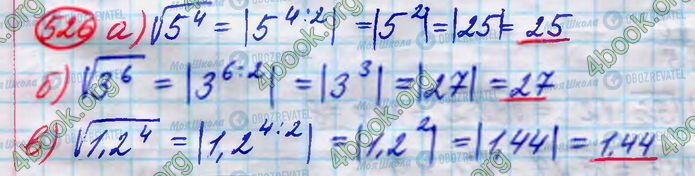 526 а) √5⁴ = |5⁴:²| = |5²| = |25| = 25
б) √3⁶ = |3⁶:²| = |3³| = |27| = 27
в) √1,2⁴ = |1,2⁴:²| = |1,2²| = |1,44| = 1,44